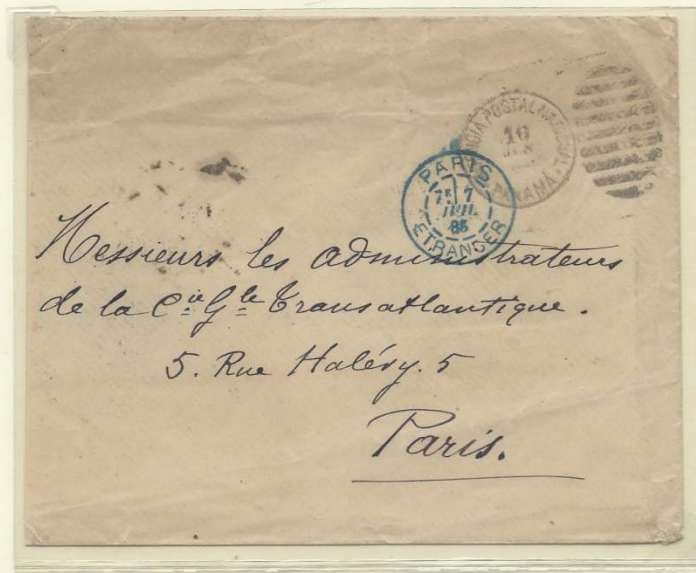 AGENCIA POSTAL NACIONAL
16
JUN
PANAMA
PARIS
7E 7
JUIL
85
ETRANGER
Messieurs les administrateurs
de la Cie Gle Transatlantique.
5. Rue Halévy. 5
Paris.